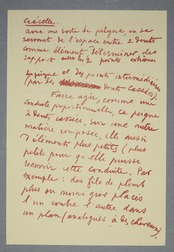 Crécelle
avec une sorte de peigne on se
servant de l'espace entre 2 dents
comme élément déterminer des
rapports entre les 2 points extrêmes
du peigne et des points intermédiaires
(par des dents cassées)
Faire agir, comme une
conduite proportionnelle, ce peigne
à dents cassées, sur une autre
matière composée, elle aussi
d'éléments plus petits (plus
petits pour qu'elle puisse
recevoir cette conduite. Par
exemple: des fils de plomb
plus ou moins gros placés
l'un contre l'autre dans
un plan (analogues à des cheveux)